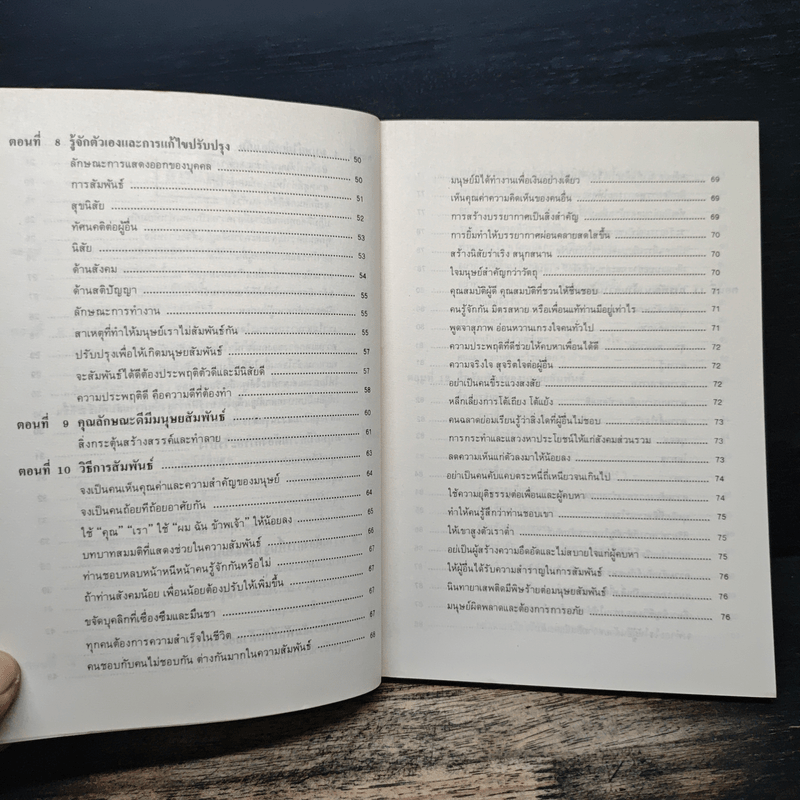 ตอนที่ 8 รู้จักตัวเองและการแก้ไขปรับปรุง 50
ลักษณะการแสดงออกของบุคคล 50
การสัมพันธ์ 51
สุขนิสัย 52
ทัศนคติต่อผู้อื่น 53
นิสัย 53
ด้านสังคม 54
ด้านสติปัญญา 55
ลักษณะการทำงาน 55
สาเหตุที่ทำให้มนุษย์เราไม่สัมพันธ์กัน 55
ปรับปรุงเพื่อให้เกิดมนุษยสัมพันธ์ 57
จะสัมพันธ์ได้ดีต้องประพฤติตัวดีและมีนิสัยดี 57
ความประพฤติดี คือความดีที่ต้องทำ 58
ตอนที่ 9 คุณลักษณะดีมีมนุษยสัมพันธ์ 60
สิ่งกระตุ้นสร้างสรรค์และทำลาย 61
ตอนที่ 10 วิธีการสัมพันธ์ 63
จงเป็นคนเห็นคุณค่าและความสำคัญของมนุษย์ 64
จงเป็นคนถ้อยทีถ้อยอาศัยกัน 65
ใช้ "คุณ" "เรา" ใช้ "ผม ฉัน ข้าพเจ้า" ให้น้อยลง 65
บทบาทสมมติที่แสดงช่วยในความสัมพันธ์ 66
ท่านชอบหลบหน้าหนีหน้าคนรู้จักกันหรือไม่ 67
ถ้าท่านสังคมน้อย เพื่อนน้อยต้องปรับให้เพิ่มขึ้น 67
ขจัดบุคลิกที่เซื่องซึมและมึนชา 67
ทุกคนต้องการความสำเร็จในชีวิต 67
คนชอบกับคนไม่ชอบกัน ต่างกันมากในความสัมพันธ์ 69
มนุษย์มิได้ทำงานเพื่อเงินอย่างเดียว 69
เห็นคุณค่าความคิดเห็นของคนอื่น 69
การสร้างบรรยากาศเป็นสิ่งสำคัญ 69
การยิ้มทำให้บรรยากาศผ่อนคลายสดใสขึ้น 70
สร้างนิสัยร่าเริง สนุกสนาน 70
ใจมนุษย์สำคัญกว่าวัตถุ 70
คุณสมบัติผู้ดี คุณสมบัติที่ชวนให้ชื่นชอบ 71
คนรู้จักกัน มิตรสหาย หรือเพื่อนแท้ท่านมีอยู่เท่าไร 71
พูดจาสุภาพ อ่อนหวานเกรงใจคนทั่วไป 71
ความประพฤติที่ดีช่วยให้คบหาเพื่อนได้ดี 72
ความจริงใจ สุจริตใจต่อผู้อื่น 72
อย่าเป็นคนขี้ระแวงสงสัย 72
หลีกเลี่ยงการโต้เถียง โต้แย้ง 72
คนฉลาดย่อมเรียนรู้ว่าสิ่งใดที่ผู้อื่นไม่ชอบ 73
การกระทำและแสวงหาประโยชน์ให้แก่สังคมส่วนรวม 73
ลดความเห็นแก่ตัวลงมาให้น้อยลง 74
อย่าเป็นคนคับแคบตระหนี่ถี่เหนียวจนเกินไป 74
ใช้ความยุติธรรมต่อเพื่อนและผู้คบหา 74
ทำให้คนรู้สึกว่าท่านชอบเขา 75
ให้เขาสูงตัวเราต่ำ 75
อย่าเป็นผู้สร้างความอึดอัดและไม่สบายใจแก่ผู้คบหา 75
ให้ผู้อื่นได้รับความสำราญในการสัมพันธ์ 76
นินทายาเสพติดมีพิษร้ายต่อมนุษยสัมพันธ์ 76
มนุษย์ผิดพลาดและต้องการการอภัย 76